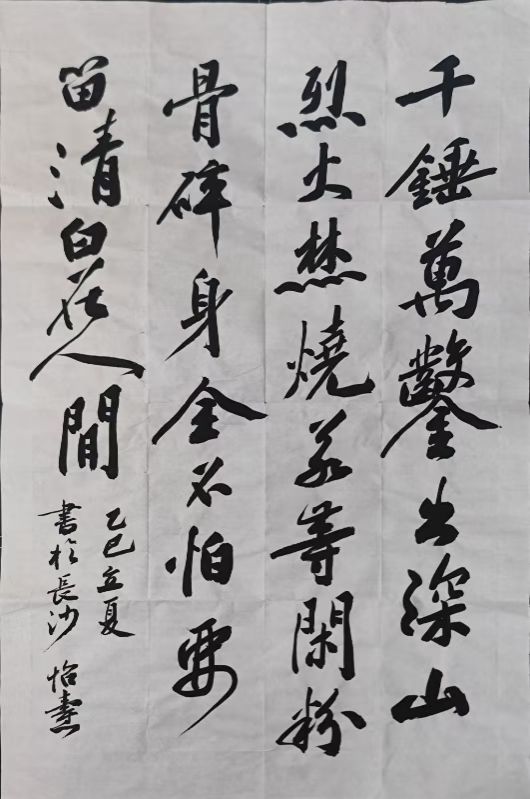 千錘萬鑿出深山
烈火焚燒若等閑粉
骨碎身全不怕要
留清白在人間
乙巳立夏
書於長沙 怡